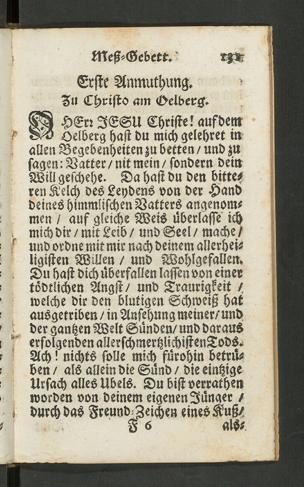 Meß-Gebett. 131
Erste Anmuthung.
Zu Christo am Oelberg.
O HErr JESU Christe! auf dem
Oelberg hast du mich gelehret in
allen Begebenheiten zu betten / und zu
sagen: Vatter / nit mein / sondern dein
Will geschehe. Da hast du den bitte-
ren Kelch des Leydens von der Hand
deines himmlischen Vatters angenom-
men / auf gleiche Weis überlasse ich
mich dir / mit Leib / und Seel / mache /
und ordne mit mir nach deinem allerhei-
ligisten Willen / und Wohlgefallen.
Du hast dich überfallen lassen von einer
tödtlichen Angst / und Traurigkeit /
welche dir den blutigen Schweiß hat
ausgetriben / in Ansehung meiner / und
der gantzen Welt Sünden / und daraus
erfolgenden allerschmertzlichisten Tods.
Ach! nichts solle mich fürohin betrü-
ben / als allein die Sünd / die eintzige
Ursach alles Ubels. Du bist verrathen
worden von deinem eigenen Jünger /
durch das Freund-Zeichen eines Kuß /
F 6 als-